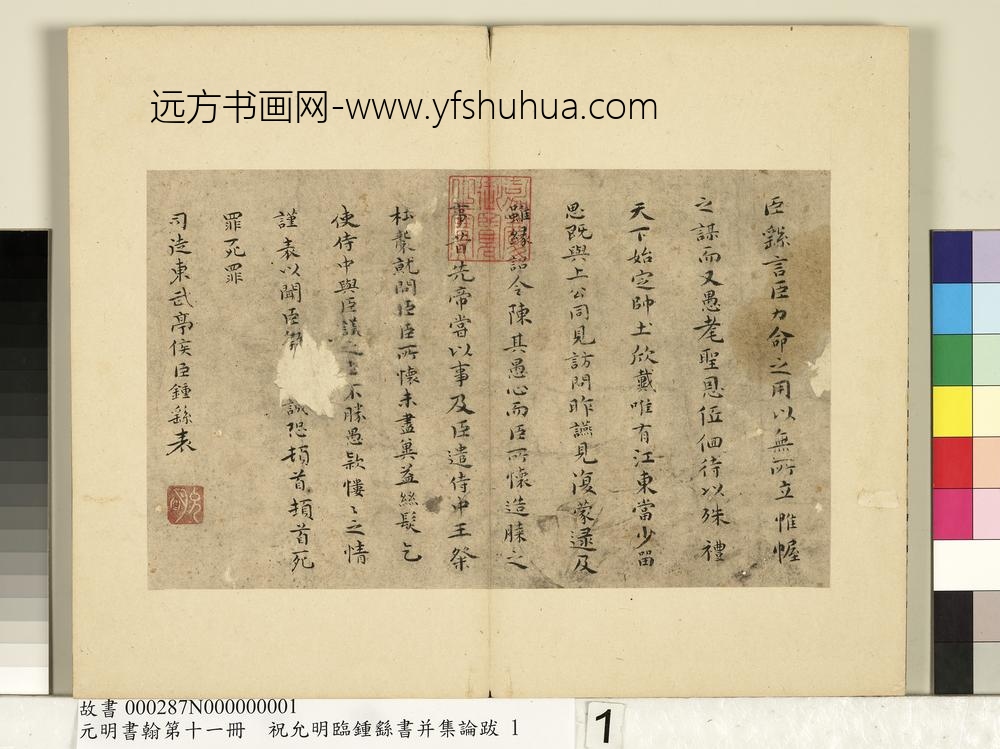 远方书画网-www.yfshuhua.com
臣繇言臣力命之用以無所立帷幄
之謀而又愚耄聖恩低佪待以殊禮
天下始定帥土欣戴唯有江東當少留
思既與上公同見訪問昨讌見復蒙逮及
雖緣詔令陳其愚心而臣所懷造膝之
事昔先帝當以事及臣遣侍中王粲
杜襲就問臣臣所懷未盡冀益絲髮乞
使侍中與臣議之臣不勝愚款慺〻之情
謹表以聞臣繇誠恐頓首頓首死
罪死罪
司徒東武亭侯臣鍾繇表
故書 000287N000000001
元明書翰第十一冊 祝允明臨鍾繇書并集論跋 1
1